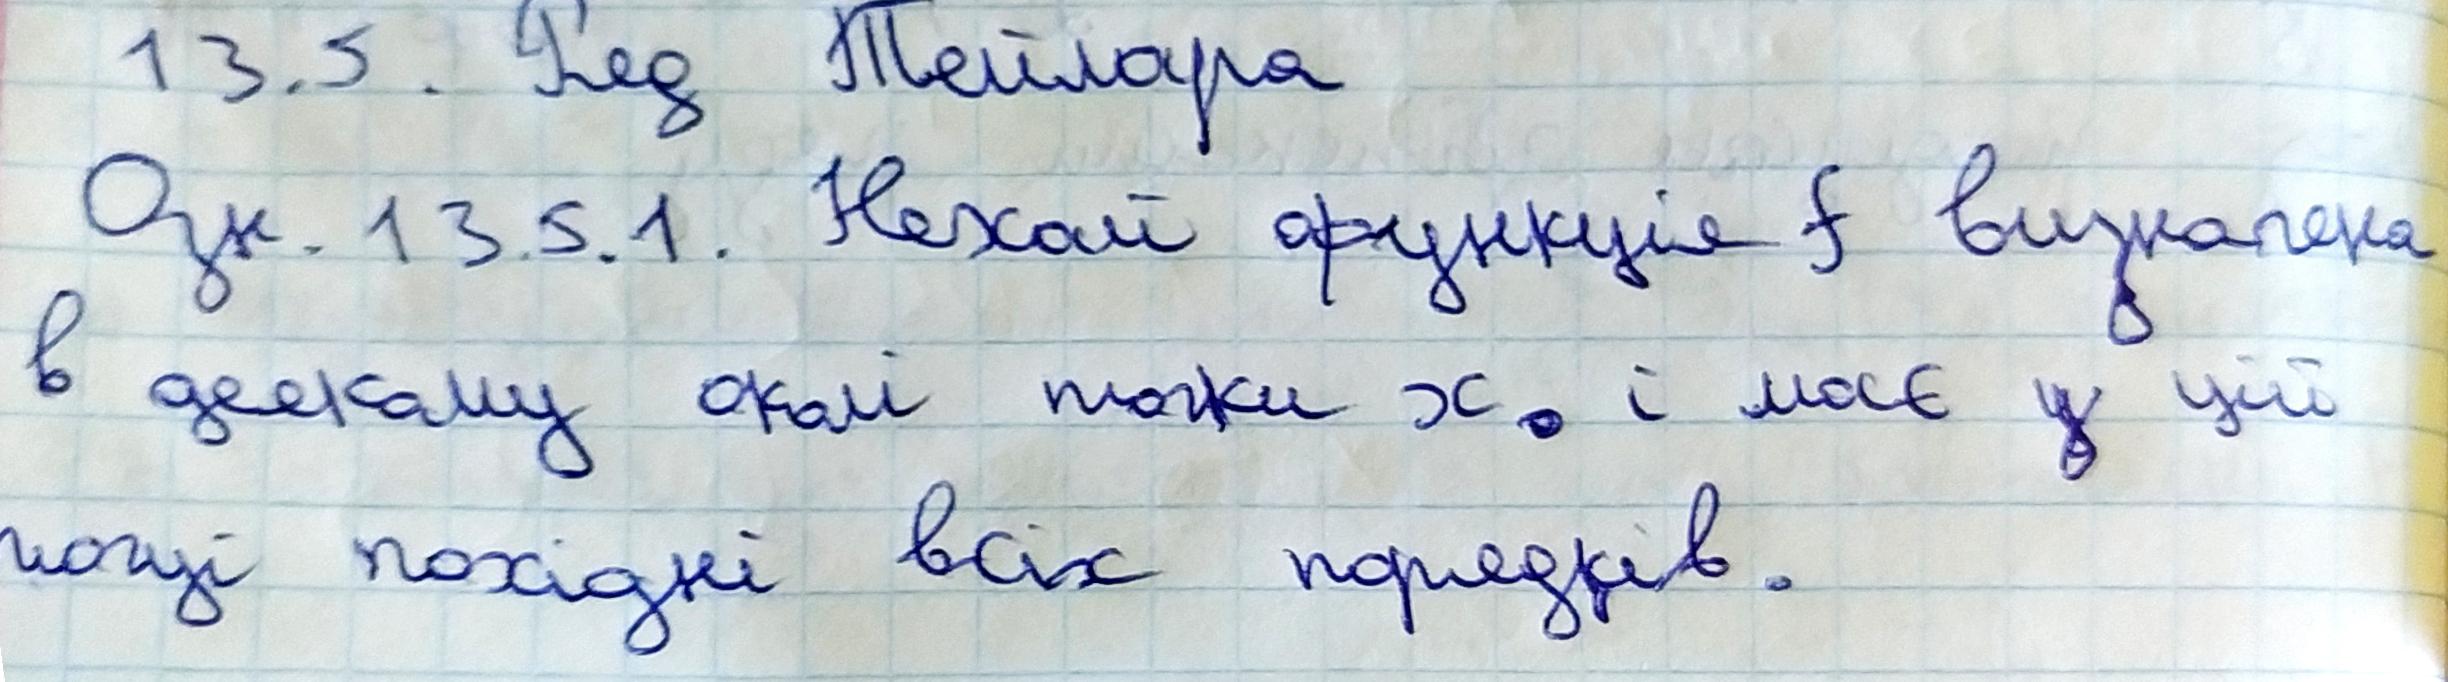 13.5. Ряд Тейлора
Озн. 13.5.1. Нехай функція f визначена
в деякому околі точки x₀ і має у цій
точці похідні всіх порядків.